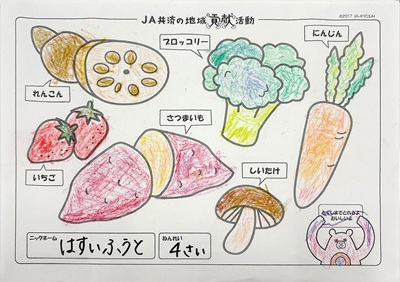 JA共済の地域貢献活動
©2017 JA-KYOSAI
ブロッコリー
にんじん
れんこん
さつまいも
いちご
しいたけ
ニックネーム
はすいふうと
ねんれい
4さい
おいしいよ